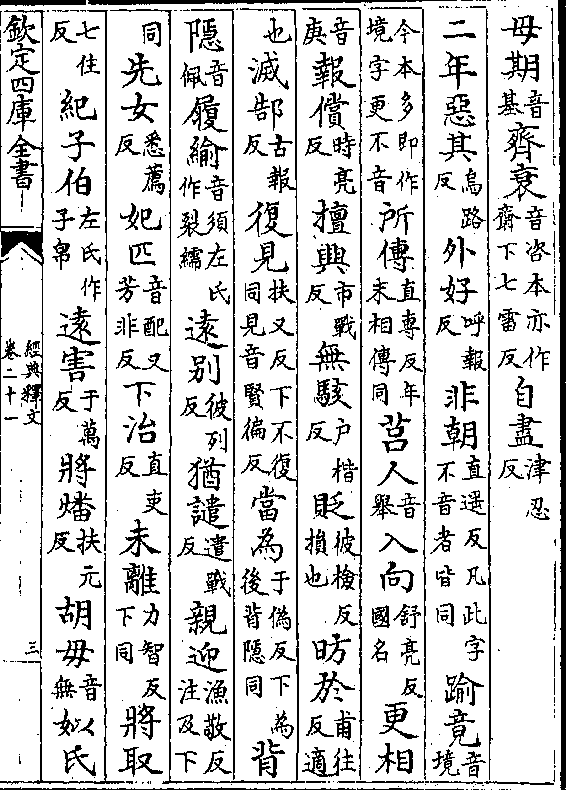 毋期音基齊衰音咨本亦作齋下七雷反自盡津忍反
二年惡其烏路反外好呼報反非朝直遥反凡此字不音者皆同踰竟音境
今本多即作境字更不音所傳直專反年末相傳同莒人音舉入向舒亮反國名更相
音庚報償時亮反擅興市戰反無駭户楷反貶彼檢反損也昉於甫往反適
也滅郜古報反復見扶又反下不復同見音賢徧反當為于偽反下為後背隱同背
隱音佩履緰音須左氏作裂繻遠别彼列反猶譴遣戰反親迎漁敬反注及下
同先女悉薦反妃匹音配又芳非反下治直吏反未離力智反下同將取
七住反紀子伯左氏作子帛遠害于萬反將燔扶元反胡毋音無姒氏
欽定四庫全書
經典釋文
卷二十一
三